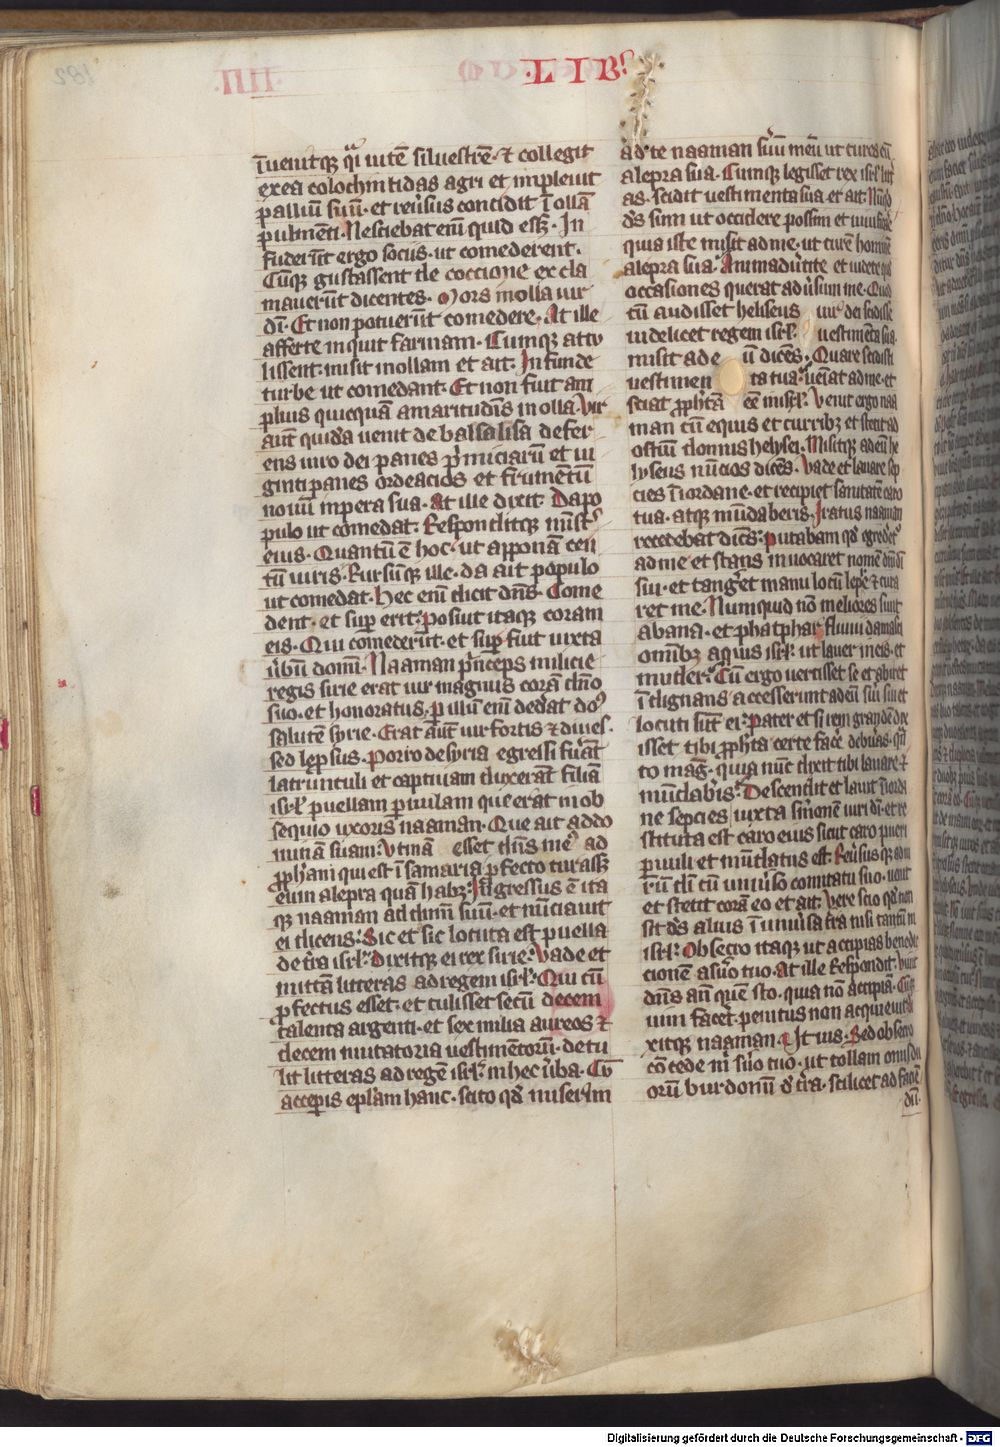 .LIBˢ
īuenitqꝫ qͣi uitē siluestrē ⁊ collegit
ex ea colochintidas agri et impleuit
palliū suū et reūsus concidit ī ollā
pulmēti. Nesciebat enī quid eēt. In
fuderūt ergo sociis ut comederent.
Cūqꝫ gustassent de coccione excla
mauerūt dicentes. Mors in olla uir
dī. Et non potuerūt comedere. At ille
afferte inquit farinam. Cumqꝫ attu
lissent misit in ollam et ait. Infunde
turbe ut comedant. Et non fuit am
plius quicquā amaritudīs in olla. Vir
aūt quidā uenit de balsalisa defer
ens uiro dei panes pͥmiciarū et ui
ginti panes ordeacios et frumentū
nouū in pera sua. At ille dixit. Da po
pulo ut comedat. Responditqꝫ mīstͬ
eius. Quantū ē hoc ut apponā cen
tū uiris. Rursūqꝫ ille. da ait populo
ut comedat. hec enī dicit dn̄s. Come
dent et sup erit. posuit itaqꝫ coram
eis. Qui comederūt et sup fuit iuxta
ūbū domī. Naaman pͥnceps milicie
regis sirie erat uir magnus corā dn̄o
suo et honoratus. p illū enī dedat do͗
salutē syrie. Erat aūt uir fortis ⁊ diues.
sed lep̄sus. Porro de syria egressi fuāt
latrunculi et captiuam duxerāt filiā
isrl̄ puellam paruulam que erat in ob
sequio uxoris naaman. Que ait ad do
minā suam. Vtinā esset dn̄s me͗ ad
ꝓph̄am qui est ī samaria pfecto curasꝫ
eum a lepra quā habꝫ. Ingressus ē ita
qꝫ naaman ad dnm̄ suū et nūciauit
ei dicens. Sic et sic locuta est puella
de tr̄a isrl̄. Dixitqꝫ ei rex sirie. Vade et
mittā litteras ad regem isrl̄. Qui cū
pfectus esset et tulisset secū decem
talenta argenti et sex milia aureos ⁊
decem mutatoria uestimētorū. detu
lit litteras ad regē isrl̄ in hec ūba. Cū
acceperis epl̄am hanc. scito qd̄ miserim
ad te naaman suū meū ut cures eū
a lepra sua. Cumqꝫ legisset rex isrl̄ litͬ
as. scidit uestimenta sua et ait. Nūqd
ds̄ sum ut occidere possim et uiuificare
quia iste misit ad me ut curē hominē
a lepra sua. Animadūtite et uidete qd
occasiones querat adūsum me. Quod
cū audisset heliseus uir dei scidisse
uidelicet regem isrl̄ uestimēta sua
misit ad eū dicēs. Quare scidisti
uestimenta tua. ueniat ad me et
sciat ꝓph̄tā eē in isrl̄. Venit ergo naa
man cū equis et curribꝫ et stetit ad
ostiū domus helysei. Misitqꝫ ad eū he
lyseus nūcios dicēs. Vade et lauare sep
cies ī iordane et recipiet sanitatē caro
tua. atqꝫ mūdaberis. Iratus naaman
recedebat dicēs. putabam qd̄ egredetͬ
ad me et stans inuocaret nomē dnī dī
sui et tangēt manu locū lepre ⁊ cura
ret me. Numquid nō meliores sunt
abana et phatphar fluuii damasci
omībꝫ aquis isrl̄ ut lauer in eis et
munder. Cū ergo uertisset se et abiret
īdignans accesserunt ad eū sui sui et
locuti sūt ei. Pater et si rem grandē dix
isset tibi ꝓph̄ta certe facē debuas. qn̄
to mag͗. quia nūc dixit tibi lauare ⁊
mūdabis. Descendit et lauit ī iorda
ne sepcies iuxta sm̄onem uiri dī et re
stituta est caro eius sicut caro pueri
paruuli et mūdatus est. Reūsusqꝫ ad ui
rū dī cū uniūso comitatu suo uenit
et stetit corā eo et ait. Vere scio qd̄ non
sit ds̄ alius ī uniūsa tr̄a nisi tantū in
isrl̄. Obsecro itaqꝫ ut accipias benedic
tionē a sūo tuo. At ille respondit. uiuit
dn̄s an̄ quē sto. quia nō accipiā. Cūqꝫ
uim facēt. penitus non acquieuit. di
xitqꝫ naaman. Ut uis. Sed obsecro
cōcede m̄ sūo tuo ut tollam onus du
orū burdonū de tr̄a. scilicet ad facē
dū.
Digitalisierung gefördert durch die Deutsche Forschungsgemeinschaft - DFG